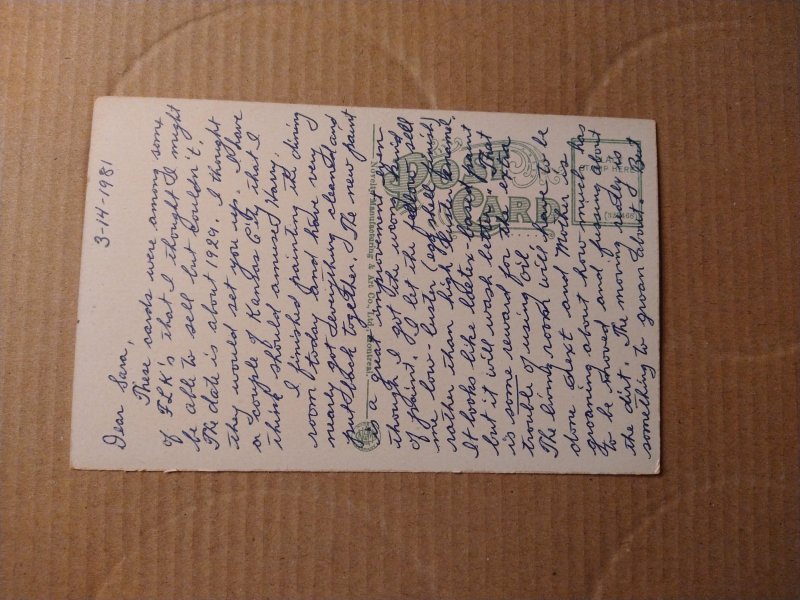 3-14-1981
Dear Sara,
These cards were among some
of FLK's that I thought I might
be able to sell but couldn't.
The date is about 1929. I thought
they would set you up. I have
a couple of Kansas City that I
think should amused Harry.
I finished painting the dining
room today and have very
neary got everything cleaned and
put back together. The new paint
is a great improvement even
though I got the wrong kind
of paint. I let the fellow sell
me low-luster (egg shell finish)
rather than high gloss enamel.
It looks like latex board paint
but it will wash better - that
is some reward for the extra
trouble of using oil
The living room will have to be
done next and Mother is
groaning about how much has
to be moved and fussing about
the dirt. The moving really is
something to groan about. But
POST
CARD
Novelty Manufacturing & Art Co., Ltd., Montreal
STAMP HERE